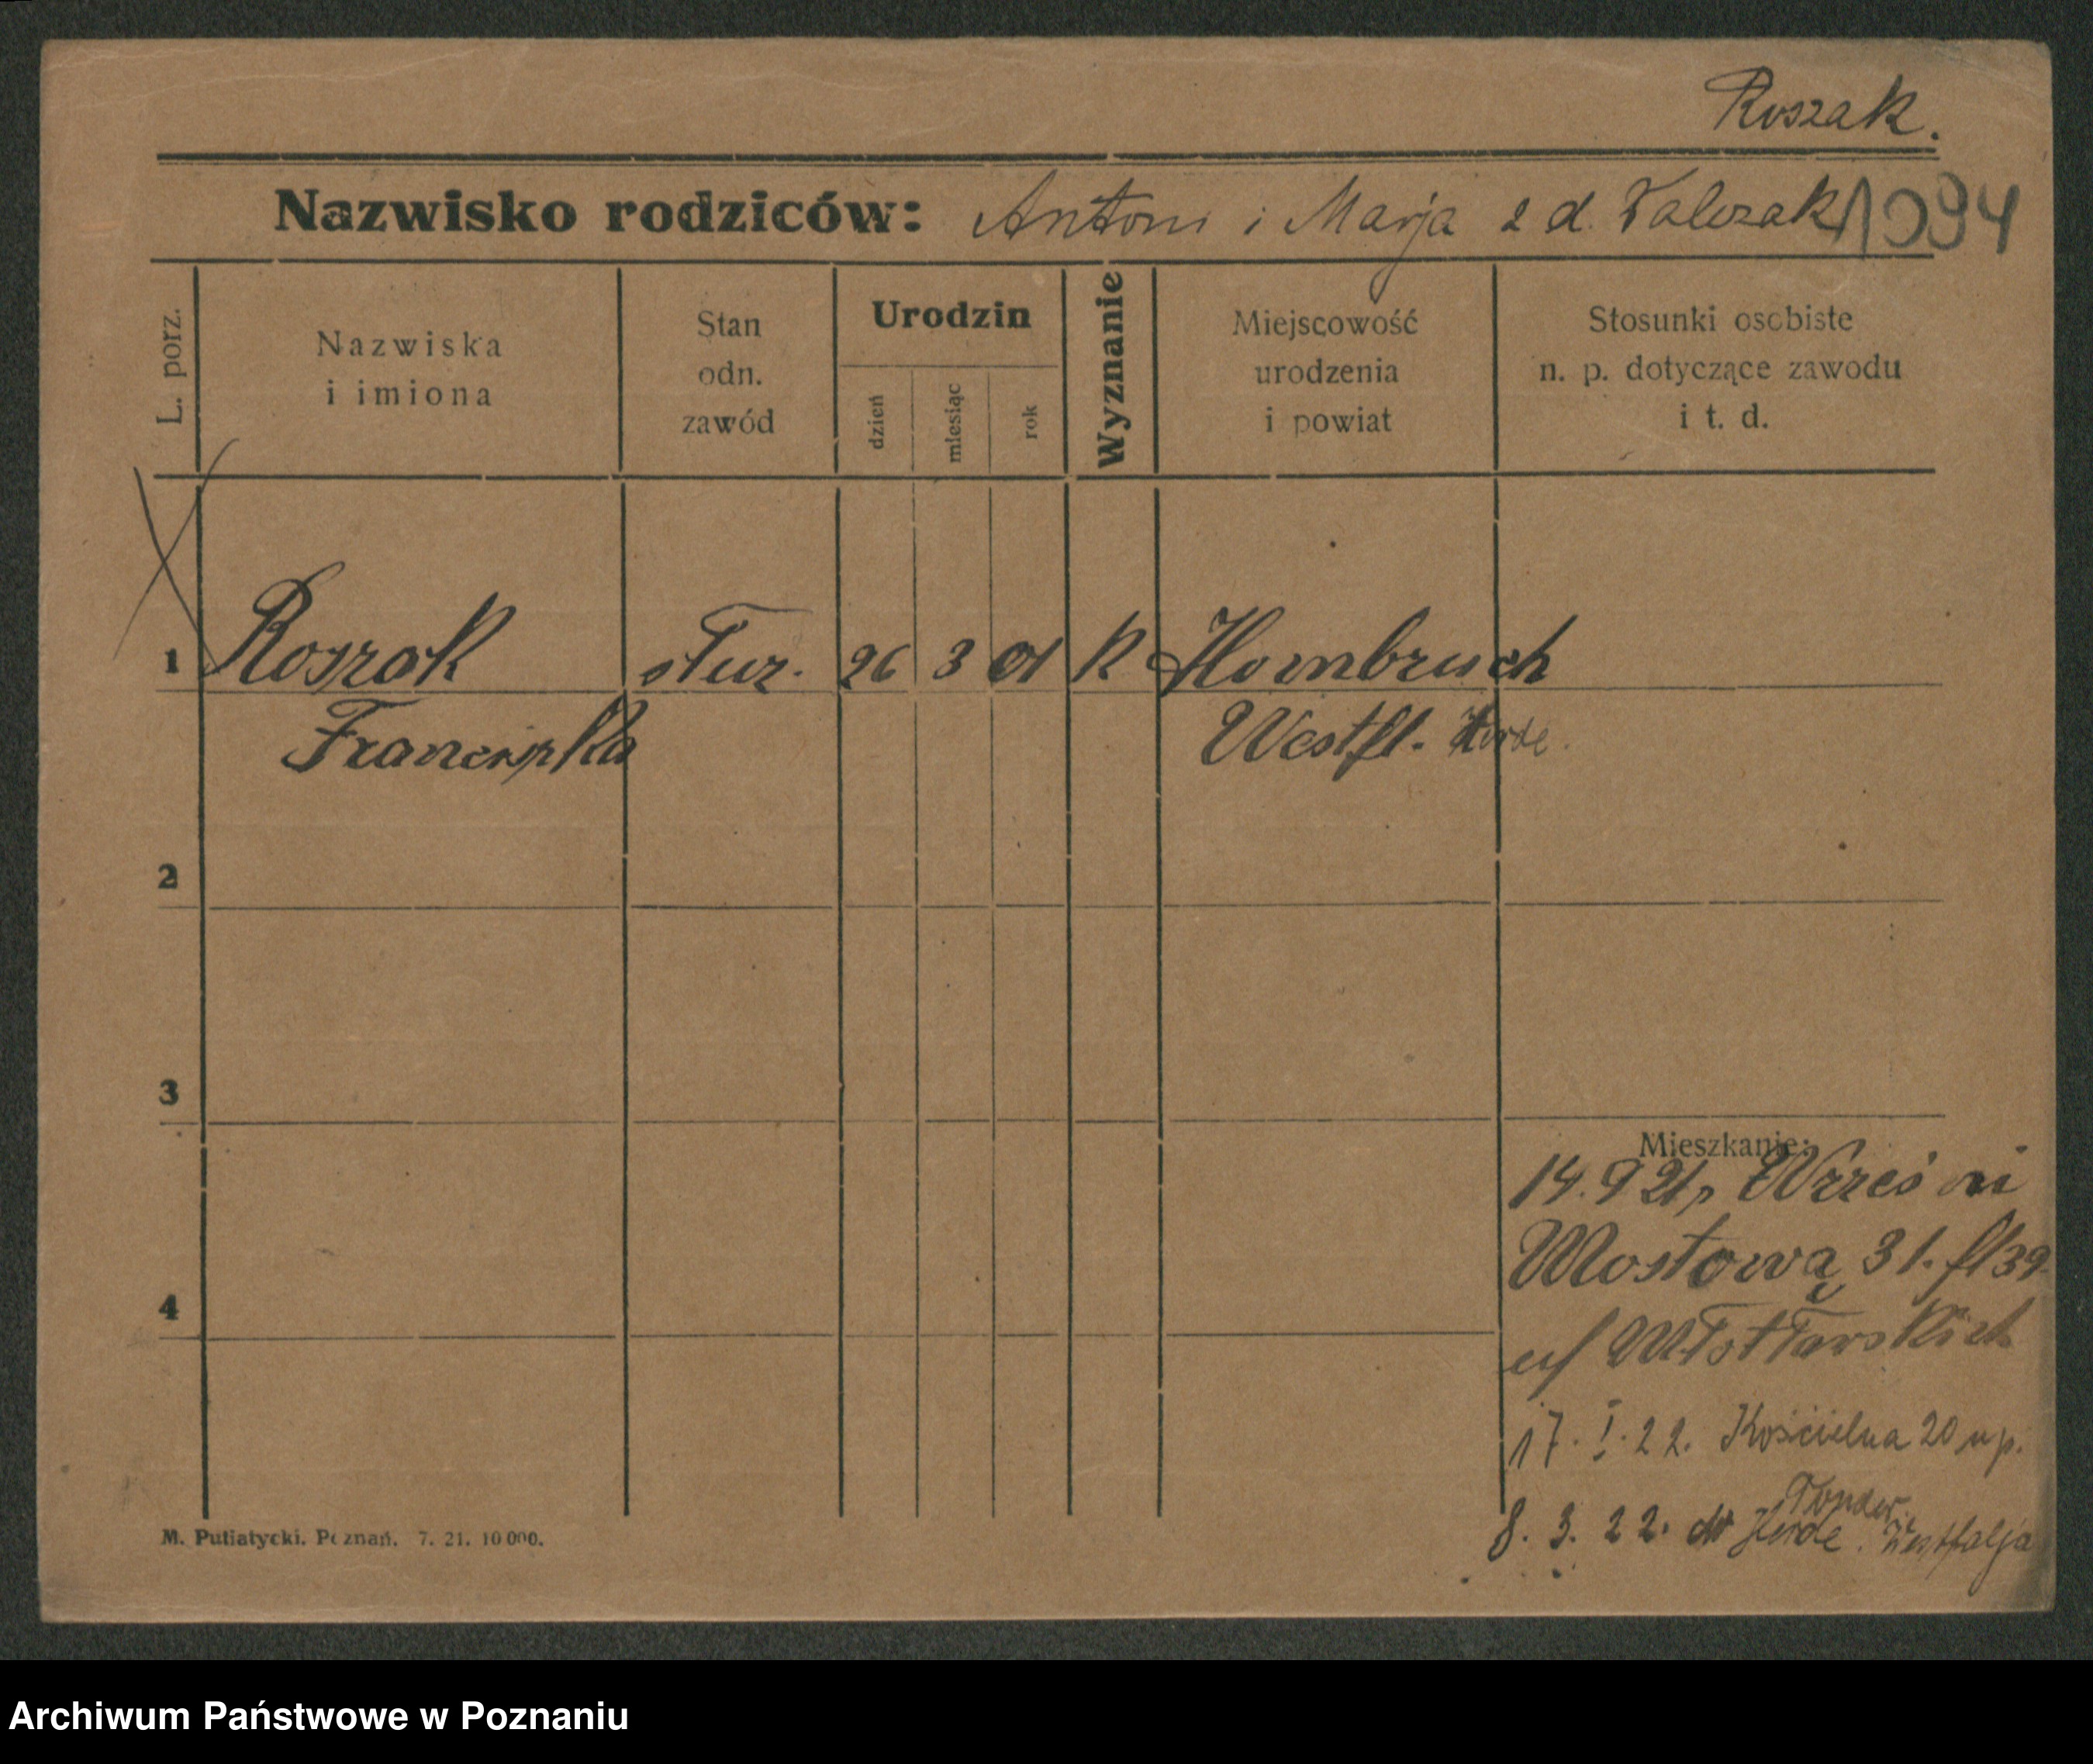 Roszak.
Nazwisko rodziców: Antoni i Marja z d. Walczak 1094
L. porz.
Nazwiska
i imiona
Stan
odn.
zawód
Urodzin
dzień
miesiąc
rok
Wyznanie
Miejscowość
urodzenia
i powiat
Stosunki osobiste
n. p. dotyczące zawodu
i t. d.
1 Roszak służ. 26 3 01 K Hombruch
Franciszka Westfl. Hörde.
2
3
Mieszkanie:
14. 9 21, Wrześni
Mostowa 31.
4
17. I. 22. Kościelna 20 u p.
8. 3. 22. do Hörde. Westfalja
M. Putiatycki. Poznań. 7. 21. 10 000.
Archiwum Państwowe w Poznaniu